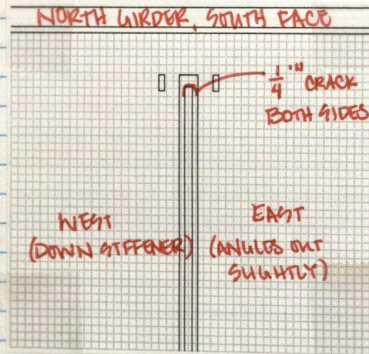 NORTH GIRDER, SOUTH FACE
1/4" CRACK
BOTH SIDES
WEST
(DOWN STIFFENER)
EAST
(ANGLES OUT
SLIGHTLY)